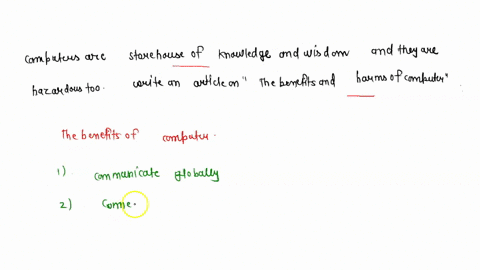 computers are storehouse of knowledge and wisdom and they are
hazardous too. write an article on " The benefits and harms of computer".
The benefits of computer.
1) communicate globally
2) Conne